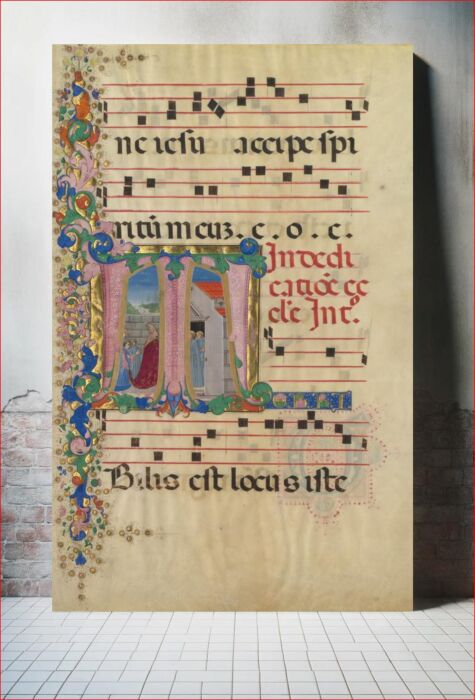 ne iesu accipe spi
ritū meuz. c. o. c.
In dedi
catiōe ec
cl'e Int°.
Bilis est locus iste